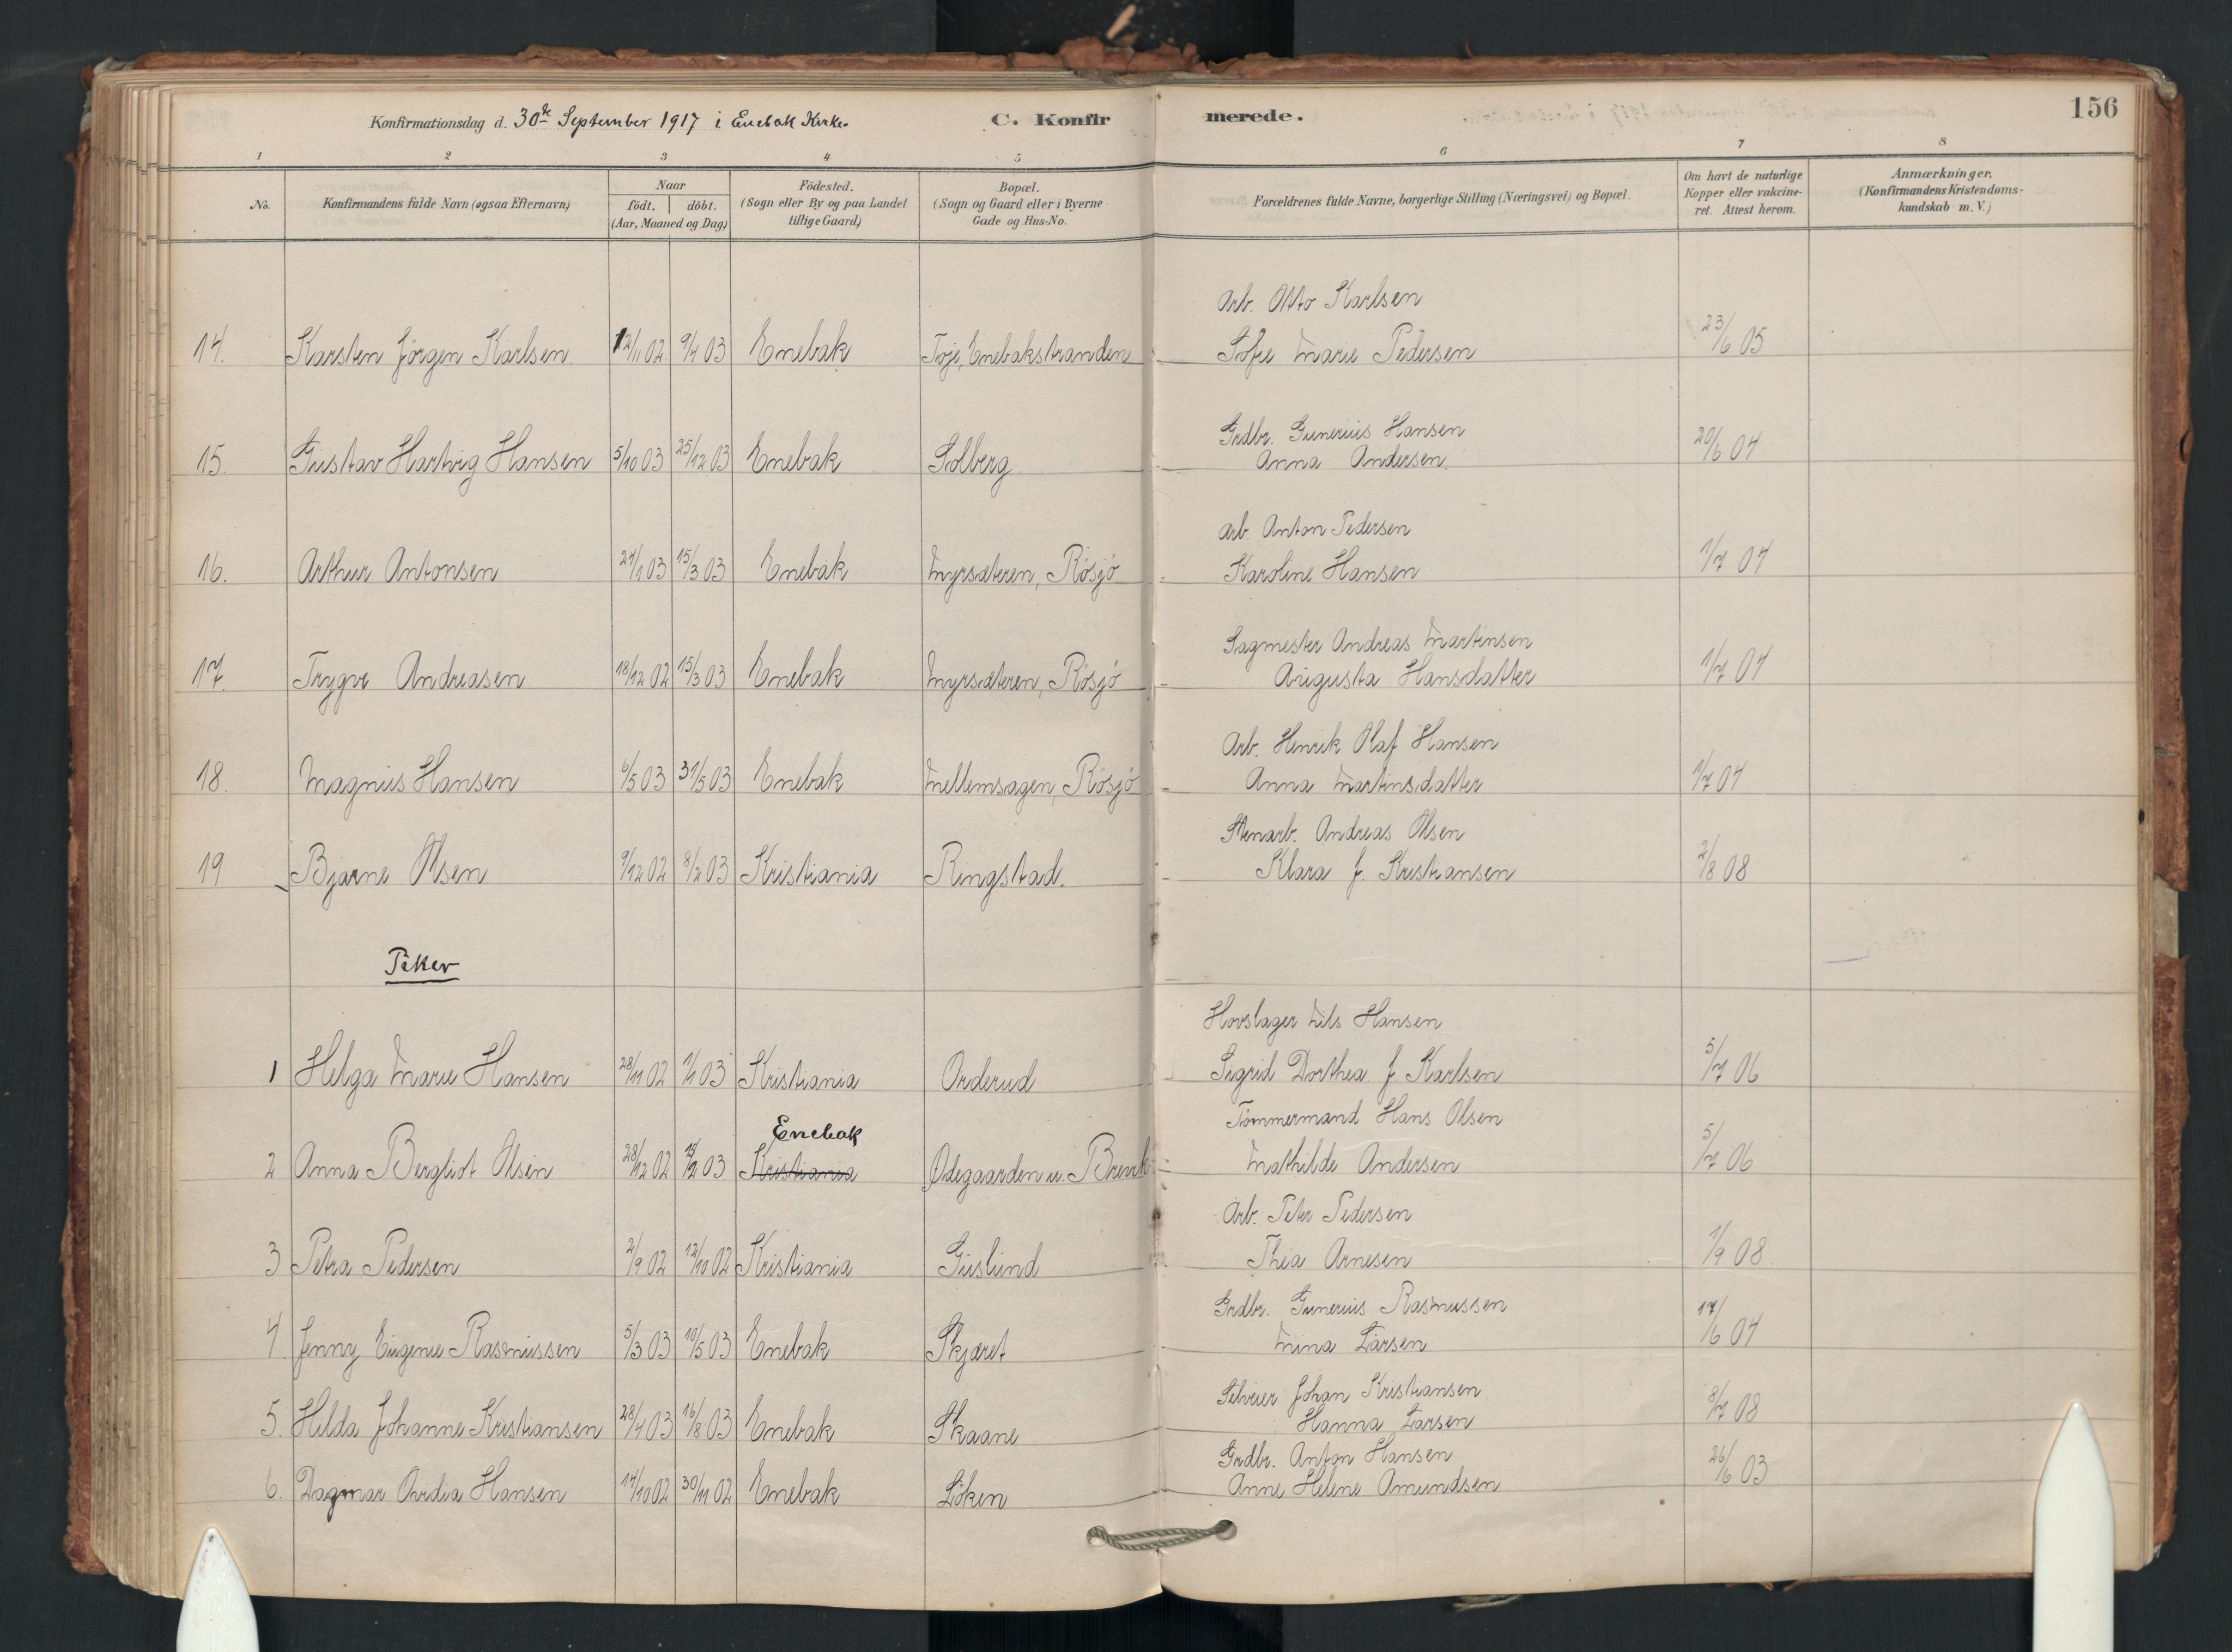 156
Konfirmationsdag d. 30de September 1917 i Enebak Kirke.
C. Konfirmerede.
1 2 3 4 5 6 7 8
No.
Konfirmandens fulde Navn (ogsaa Efternavn)
Naar
födt. döbt.
(Aar, Maaned og Dag)
Födested.
(Sogn eller By og paa Landet
tillige Gaard)
Bopæl.
(Sogn og Gaard eller i Byerne
Gade og Hus-No.
Forældrenes fulde Navne, borgerlige Stilling (Næringsvei) og Bopæl.
Om havt de naturlige
Kopper eller vakcine-
ret. Attest herom.
Anmærkninger.
(Konfirmandens Kristendoms-
kundskab m. V.)
Arb. Otto Karlsen
14. Karsten Jörgen Karlsen 12/11 02 9/4 03 Enebak Töje, Enebakstranden Sofie Marie Pedersen 23/6 05
Grdbr. Gunerius Hansen
15. Gustav Hartvig Hansen 5/10 03 25/12 03 Enebak Solberg Anna Andersen 20/6 04
Arb. Anton Pedersen
16. Arthur Antonsen 24/1 03 15/3 03 Enebak Myrsæteren, Rösjö Karoline Hansen 1/7 04
Sagmester Andreas Martinsen
17. Trygve Andreasen 18/12 02 15/3 03 Enebak Myrsæteren, Rösjö Augusta Hansdatter 1/7 04
Arb. Henrik Olaf Hansen
18. Magnus Hansen 6/5 03 31/5 03 Enebak Mellemsagen, Rösjö Anna Martinsdatter 1/7 04
Stenarb. Andreas Olsen
19 Bjarne Olsen 9/12 02 8/2 03 Kristiania Ringstad. Klara f. Kristiansen 2/8 08
Piker
Hovslager Nils Hansen
1 Helga Marie Hansen 28/11 02 1/1 03 Kristiania Orderud Sigrid Dorthea f. Karlsen 5/7 06
Enebak Tömmermand Hans Olsen
2 Anna Bergliot Olsen 28/12 02 03 Kristiania Ødegaarden u. Mathilde Andersen 5/7 06
Arb. Peter Pedersen
3 Petra Pedersen 2/9 02 12/10 02 Kristiania Guslund Thea Arnesen 1/9 08
Grdbr. Gunerius Rasmussen
4 Jenny Eugenie Rasmussen 5/3 03 10/5 03 Enebak Skjæret Mina Larsen 17/6 04
Selveier Johan Kristiansen
5. Hilda Johanne Kristiansen 28/4 03 16/8 03 Enebak Skaane Hanna Larsen 8/7 08
Grdbr. Anton Hansen
6. Dagmar Ovidia Hansen 17/10 02 30/11 02 Enebak Löken Anne Helene Amundsen 26/6 03